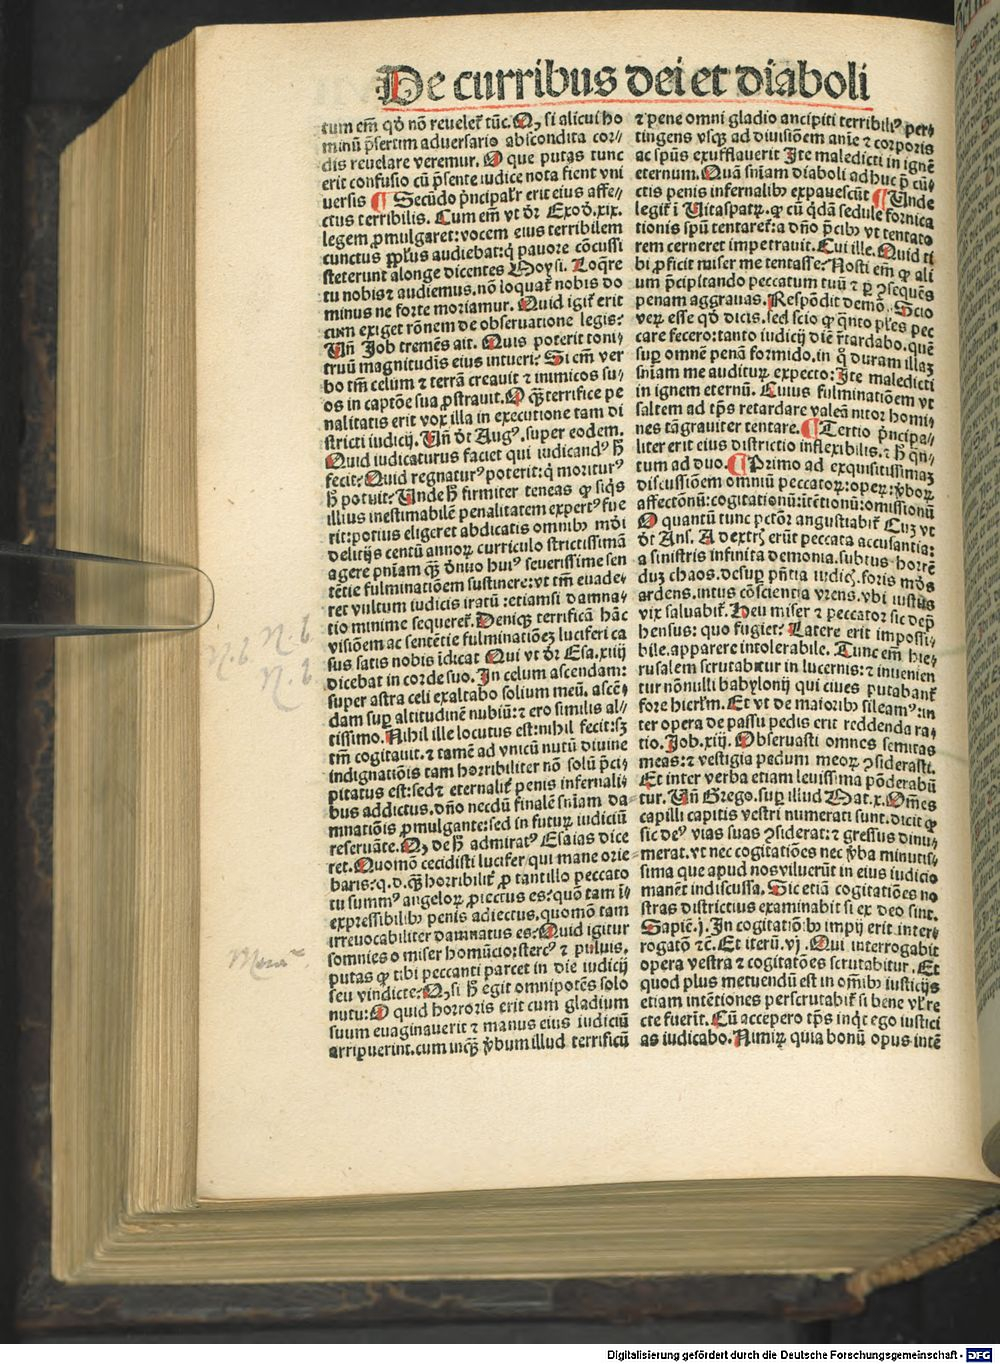 De curribus dei et diaboli
tum em̄ qd̄ nō reuelet̄ tūc. Q, si alicui ho
minū p̄sertim aduersario abscondita cor⸗
dis reuelare veremur. O que putas tunc
erit confusio cū p̄sente iudice nota fient vni
uersis ¶ Secūdo p̄ncipal'r erit eius affe⸗
ctus terribilis. Cum em̄ vt dr̄ Exod̄.xix.
legem ꝓmulgaret: vocem eius terribilem
cunctus pp̄lus audiebat: q̇ pauore cōcussi
steterunt alonge dicentes Moysi. Loq̄re
tu nobis⁊ audiemus. nō loquat̄ nobis do
minus ne forte moriamur. Quid igit̄ erit
cum exiget rōnem de obseruatione legis?
Un̄ Job tremēs ait. Quis poterit toni⸗
truū magnitudis eius intueri? Si em̄ ver
bo tm̄ celum ⁊ terrā creauit ⁊ inimicos su⸗
os in captōe sua ꝓstrauit. O qꝫ̄ terrifice pe
nalitatis erit vox illa in executione tam di
stricti iudicij. Un̄ dt̄ Augꝰ. super eodem.
Quid iudicaturus faciet qui iudicandꝰ h̄
fecit? Quid regnaturꝰ poterit: q̇ moriturꝰ
h̄ potuit? Unde h̄ firmiter teneas ꝙ siq̇s
illius inestimabilē penalitatem expertꝰ fue
rit: potius eligeret abdicatis omnibꝫ mōi
delitijs centū annoꝝ curriculo strictissimā
agere pn̄iam qꝫ̄ d̓nuo huiꝰ seuerissime sen
tētie fulminatiōem sustinere: vt tm̄ euade⸗
ret vultum iudicis iratū: etiamsi damna⸗
tio minime sequeret̄. Deniqꝫ terrificā hāc
visiōem ac sentētie fulminatiōeꝫ luciferi ca
sus satis nobis īdicat Qui vt dr̄ Esa.xiiij
dicebat in corde suo. In celum ascendam:
super astra celi exaltabo solium meū. ascē⸗
dam suꝑ altitudinē nubiū: ⁊ ero similis al⸗
tissimo. Nihil ille locutus est: nihil fecit: sꝫ
tm̄ cogitauit. ⁊ tamē ad vnicū nutū diuine
indignatiōis tam horribiliter nō solū p̄ci⸗
pitatus est: sed⁊ eternalit̄ penis infernali⸗
bus addictus. dn̄o necdū finalē sn̄iam da⸗
mnatiōis ꝓmulgante: sed in futuꝝ iudiciū
reseruāte. Q, de h̄ admiratꝰ Esaias dice
ret. Quomō cecidisti lucifer qui mane orie⸗
baris? q.d. qꝫ̄ horribilit̄ ꝓ tantillo peccato
tu summꝰ angeloꝝ ꝓiectus es: quō tam ī⸗
expressibilibꝫ penis adiectus. quomō tam
irreuocabiliter damnatus es? Quid igitur
somnies o miser homūcio: stercꝰ ⁊ puluis.
putas ꝙ tibi peccanti parcet in die iudicij
seu vindicte? Q, si h̄ egit omnipotēs solo
nutu: O quid horroris erit cum gladium
suum euaginauerit ⁊ manus eius iudiciū
arripuerint. cum inqꝫ̄ v̓bum illud terrificū
⁊ pene omni gladio ancipiti terribiliꝰ per⸗
tingens vsqꝫ ad diuisiōem aīe ⁊ corporis
ac spūs exufflauerit Ite maledicti in ignē
eternum. Quā sn̄iam diaboli adhuc p̄ cū⸗
ctis penis infernalibꝫ expauescūt ¶ Unde
legit̄ ī Uitaspatꝝ. ꝙ cū q̇dā sedule fornica
tionis spū tentaret̄: a dn̄o p̄cibꝫ vt tentato
rem cerneret impetrauit. Cui ille. Quid ti
bi ꝓficit miser me tentasse? Nosti em̄ ꝙ ali
um p̄cipitando peccatum tuū ⁊ ꝑ ꝯsequēs
penam aggrauas. Respōdit demō. Scio
veꝝ esse qd̄ dicis. sed scio ꝙ q̄nto pl'es pec
care fecero: tanto iudicij diē r̄tardabo. quē
suꝑ omnē penā formido. in q̇ duram illaꝫ
sn̄iam me auditurꝝ expecto: Ite maledicti
in ignem eternū. Cuius fulminatiōem vt
saltem ad tp̄s retardare valeā nitor homi⸗
nes tāgrauiter tentare. ¶ Tertio p̄ncipa⸗
liter erit eius districtio inflexibilis. ⁊ h̄ q̄n⸗
tum ad duo. ¶ Primo ad exquisitissimaꝫ
discussiōem omniū peccatoꝝ: opeꝝ: v̓boꝝ
affectōnū: cogitationū: itētionū: omissionū
O quantū tunc pctōr angustiabit̄ Cuꝫ vt
dt̄ Ans. A dextrꝭ erūt peccata accusantia:
a sinistris infinita demonia. subtus horrē
duꝫ chaos. desuꝑ pn̄tia iudicꝭ. foris mōs
ardens. intus cōscientia vrens. vbi iustus
vix saluabit̄. Heu miser ⁊ peccator sic dep̄
hensus: quo fugiet? Latere erit impossi⸗
bile. apparere intolerabile. Tunc em̄ hie⸗
rusalem scrutabitur in lucernis: ⁊ inuenien
tur nōnulli babylonij qui ciues putabant̄
fore hierl'm. Et vt de maioribꝫ sileamꝰ: in
ter opera de passu pedis erit reddenda ra⸗
tio. Job.xiij. Obseruasti omnes semitas
meas: ⁊ vestigia pedum meoꝝ ꝯsiderasti.
Et inter verba etiam leuissima pōderabū
tur. Un̄ Grego. suꝑ illud Mat.x. Om̄es
capilli capitis vestri numerati sunt. dicit ꝙ
sic deꝰ vias suas ꝯsiderat: ⁊ gressus dinu⸗
merat. vt nec cogitatiōes nec v̓ba minutis⸗
sima que apud nos viluerūt in eius iudicio
manēt indiscussa. Sic etiā cogitatiōes no
stras districtius examinabit si ex deo sint.
Sapiē.j. In cogitatiōibꝫ impij erit inter⸗
rogatō ⁊c̄. Et iterū.vj. Qui interrogabit
opera vestra ⁊ cogitatōes scrutabitur. Et
quod plus metuendū est in om̄ibꝫ iusticijs
etiam intētiones perscrutabit̄ si bene vl' re
cte fuerīt. Cū accepero tp̄s inq̇t ego iustici
as iudicabo. Nimiꝝ quia bonū opus intē
N.b.
N.b
N.b
Digitalisierung gefördert durch die Deutsche Forschungsgemeinschaft - DFG